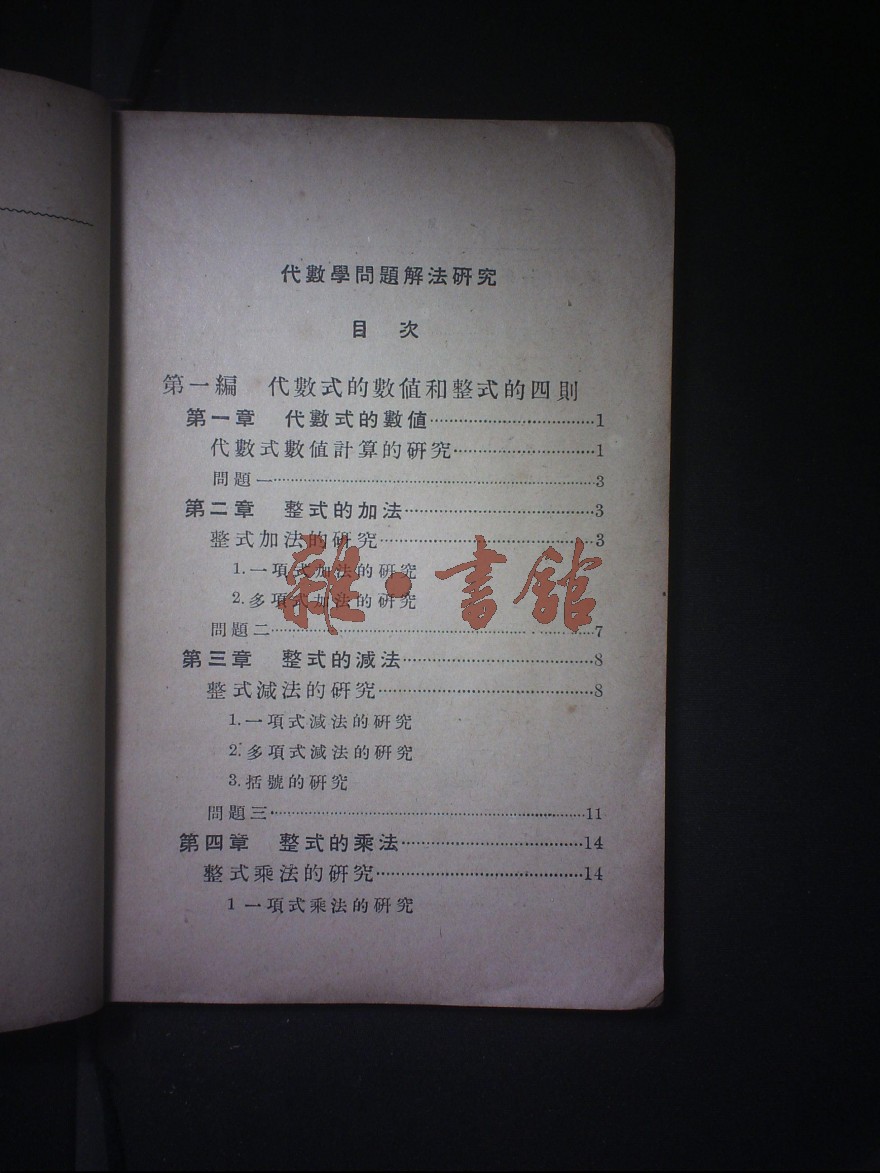 代數學問題解法研究
目 次
第一編 代數式的數值和整式的四則
第一章 代數式的數值……………………………1
代數式數值計算的研究……………………1
問題一……………………………………………3
第二章 整式的加法………………………………3
整式加法的研究………………………………3
1.一項式加法的研究
2.多項式加法的研究
雜·書館
問題二……………………………………………7
第三章 整式的減法………………………………8
整式減法的研究………………………………8
1.一項式減法的研究
2.多項式減法的研究
3.括號的研究
問題三……………………………………………11
第四章 整式的乘法………………………………14
整式乘法的研究………………………………14
1 一項式乘法的研究